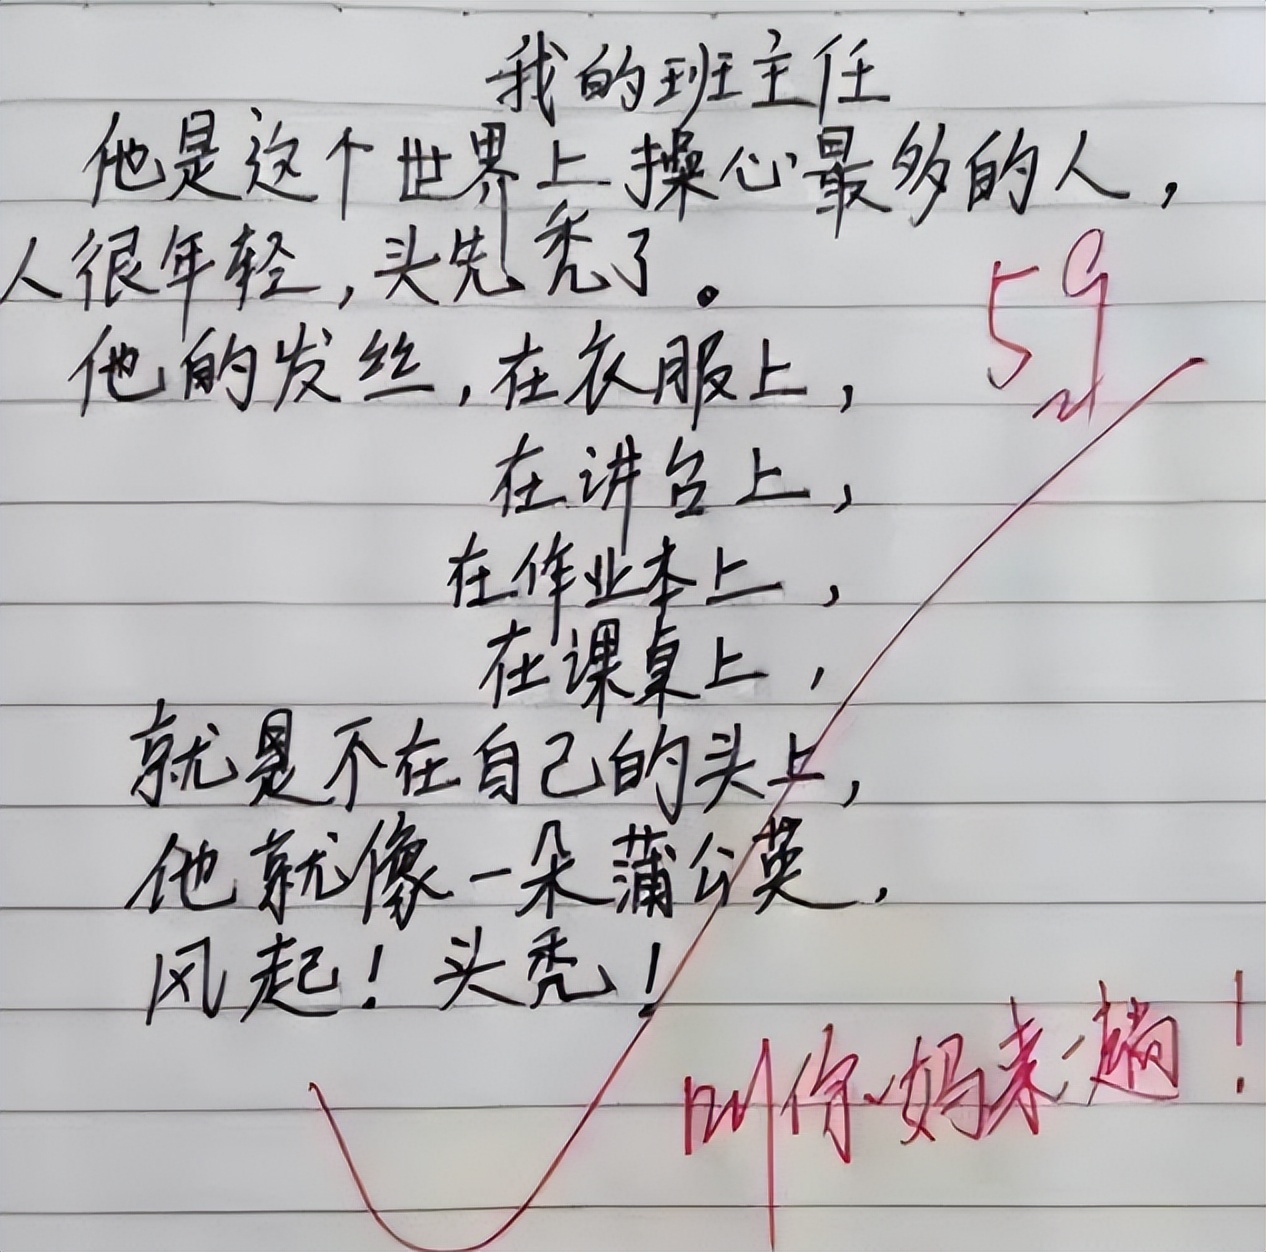 我的班主任
他是这个世界上操心最多的人，
人很年轻，头先秃了。
59
他的发丝，在衣服上，
在讲台上，
在作业本上，
在课桌上，
就是不在自己的头上，
他就像一朵蒲公英，
风起！头秃！
叫你妈来趟！